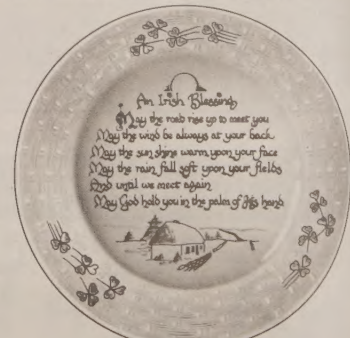 An Irish Blessing
May the road rise up to meet you
May the wind be always at your back
May the sun shine warm upon your face
May the rain fall soft upon your fields
And until we meet again
May God hold you in the palm of His hand